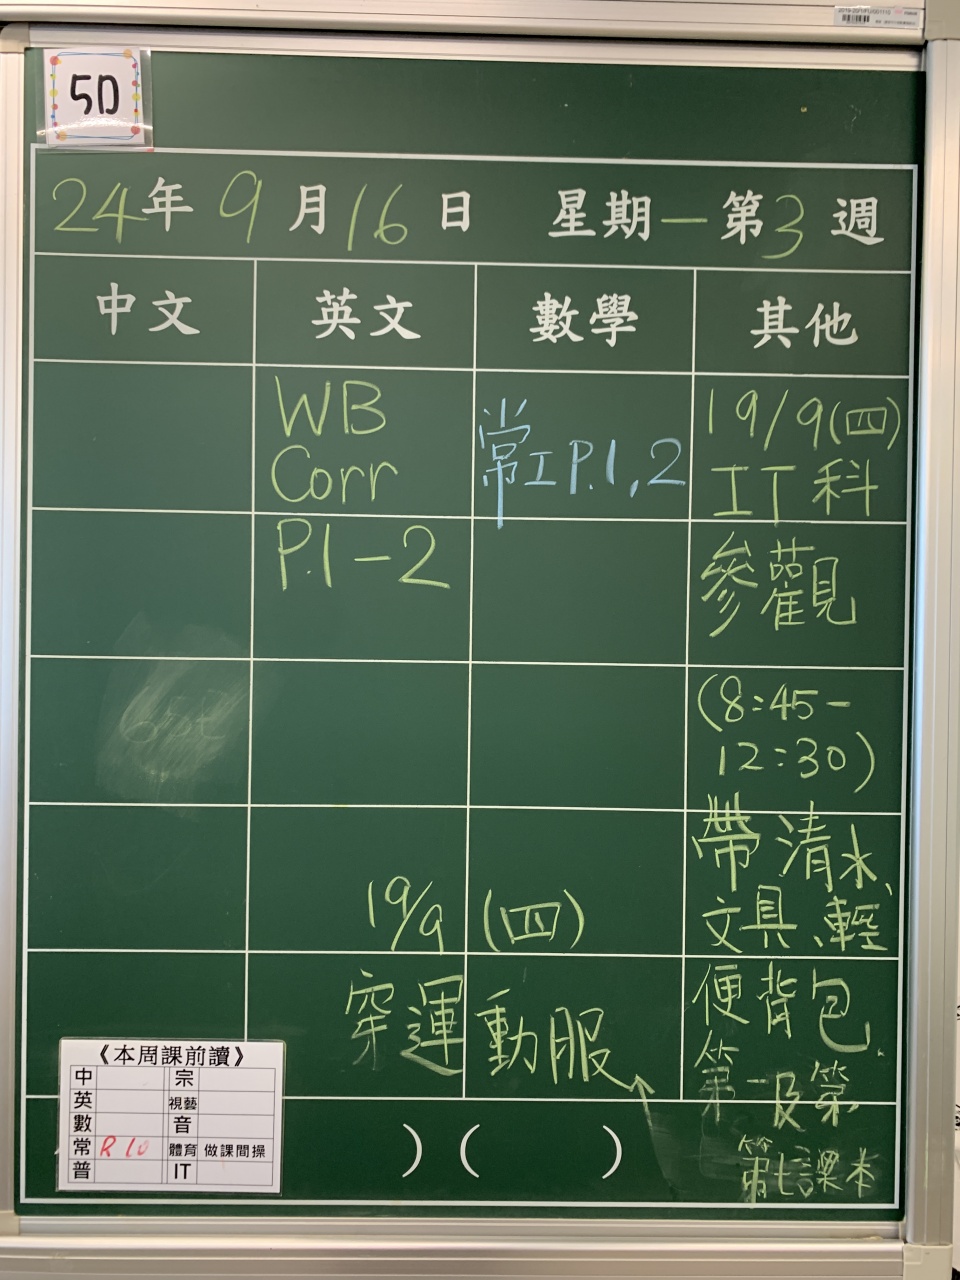 5D
24年9月16日 星期一第3週
中文 英文 數學 其他
WB
Corr
P.1-2
常工P.1,2
19/9(四)
IT科
參觀
(8:45-
12:30)
帶清水、
文具、輕
便背包
第一及第
第七課本
19/9 (四)
穿運動服
《本周課前讀》
中 宗
英 視藝
數 音
常 R 10 體育 做課間操
普 IT
) ( )